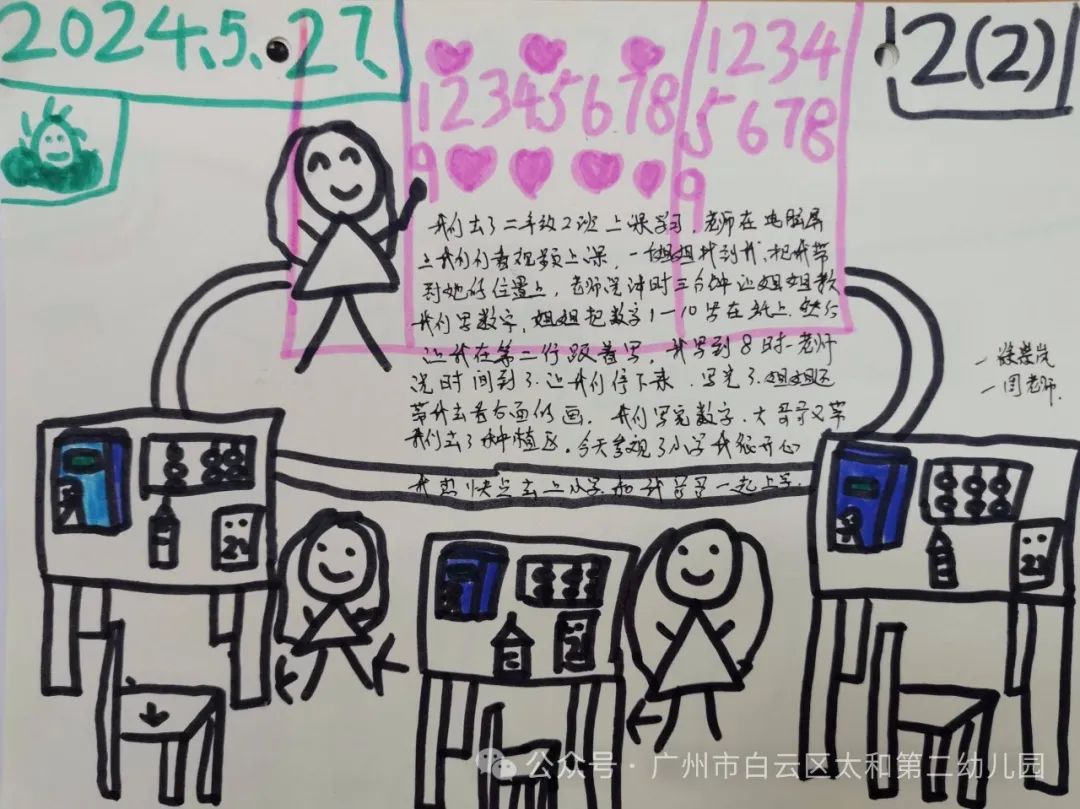 2024.5.27、
2(2)
12345678
9
1234
5678
9
我们去了二年级2班上课学习,老师在电脑屏
上我们们看视频上课,一姐姐找到我,把我带
到她的位置上,老师说计时三分钟让姐姐教
我们写数字,姐姐把数字1—10写在纸上,然后
让我在第二行跟着写,我写到8时老师
说时间到了.让我们停下来.写完了.姐姐还
带我去看后面的画.我们写完数字.大哥哥又带
我们去了种植区.今天参观了小学我很开心
我想快点去上小学和我哥哥一起上学.
老师.
24
24
24
公众号·广州市白云区太和第二幼儿园